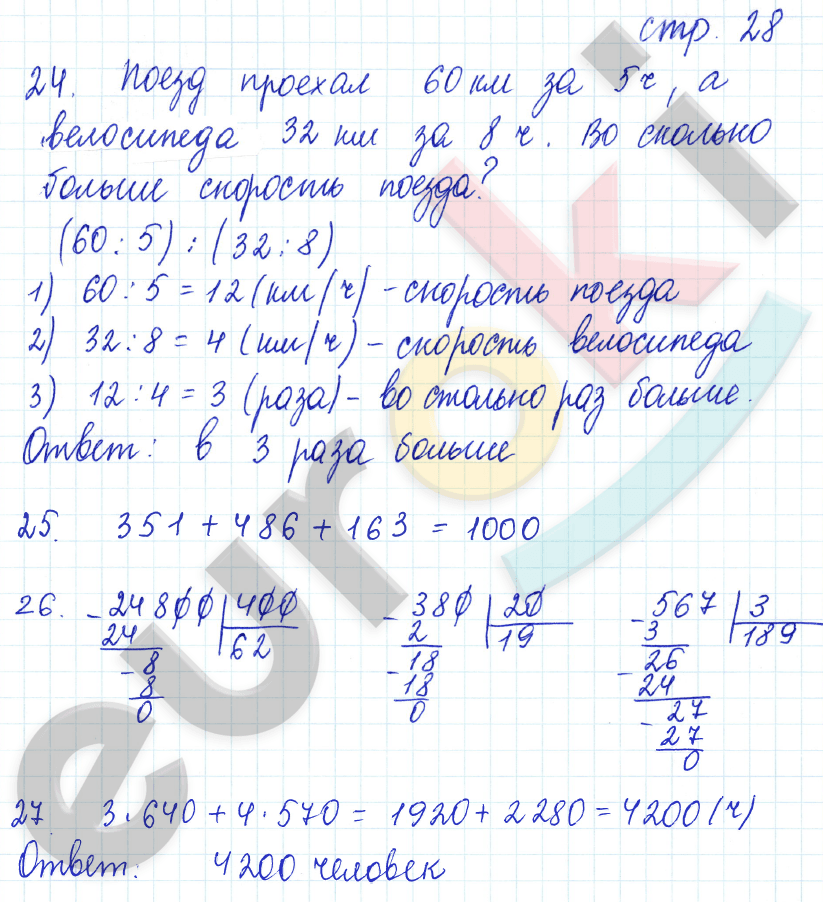 стр. 28
24. Поезд проехал 60 км за 5 ч, а
велосипеда 32 км за 8 ч. Во сколько
больше скорость поезда?
(60 : 5) : (32 : 8)
1) 60 : 5 = 12 (км/ч) - скорость поезда
2) 32 : 8 = 4 (км/ч) - скорость велосипеда
3) 12 : 4 = 3 (раза) - во столько раз больше.
Ответ: в 3 раза больше
25. 351 + 486 + 163 = 1000
26. - 24800 | 400 - 380 | 20 - 567 | 3
24 62 2 19 3 189
- 8 - 18 - 26
8 18 24
0 0 - 27
27
0
27 3 · 640 + 4 · 570 = 1920 + 2280 = 4200 (ч)
Ответ: 4200 человек
euroki